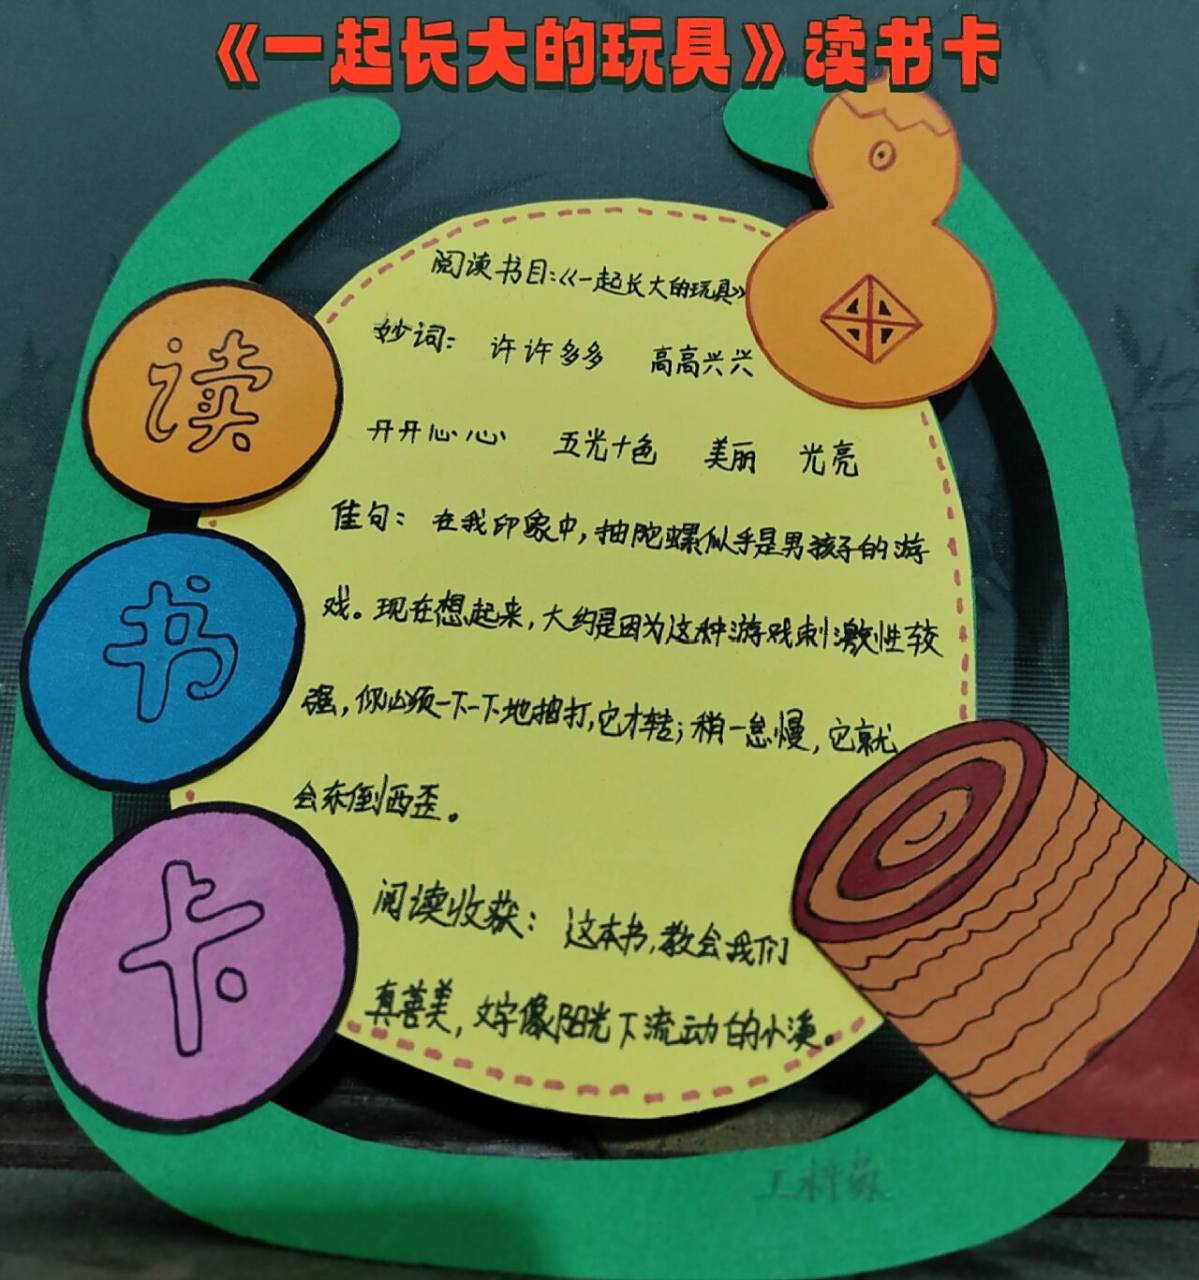 《一起长大的玩具》读书卡
读
书
卡
阅读书目:《一起长大的玩具》
妙词: 许许多多 高高兴兴
开开心心 五光十色 美丽 光亮
佳句: 在我印象中,抽陀螺似乎是男孩子的游
戏。现在想起来,大约是因为这种游戏刺激性较
强,你必须一下一下地抽打,它才转;稍一怠慢,它就
会东倒西歪。
阅读收获: 这本书,教会我们
真善美,文字像阳光下流动的小溪。